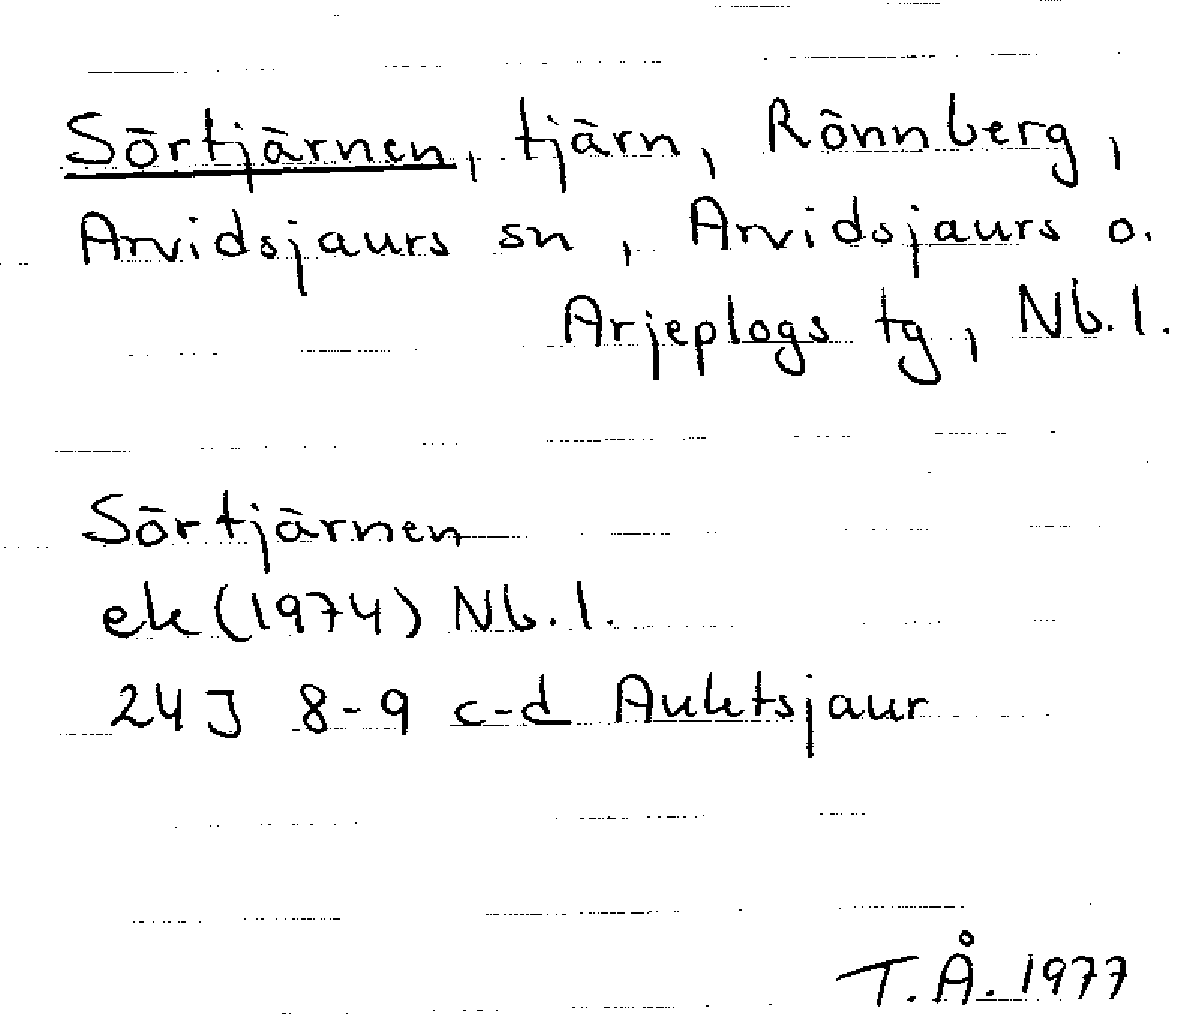 Sörtjärnen, tjärn, Rönnberg,
Arvidsjaurs sn, Arvidsjaurs o.
Arjeplogs tg, Nb. l.
Sörtjärnen
ek (1974) Nb. l.
24 J 8-9 c-d Auktsjaur
T.Å. 1977